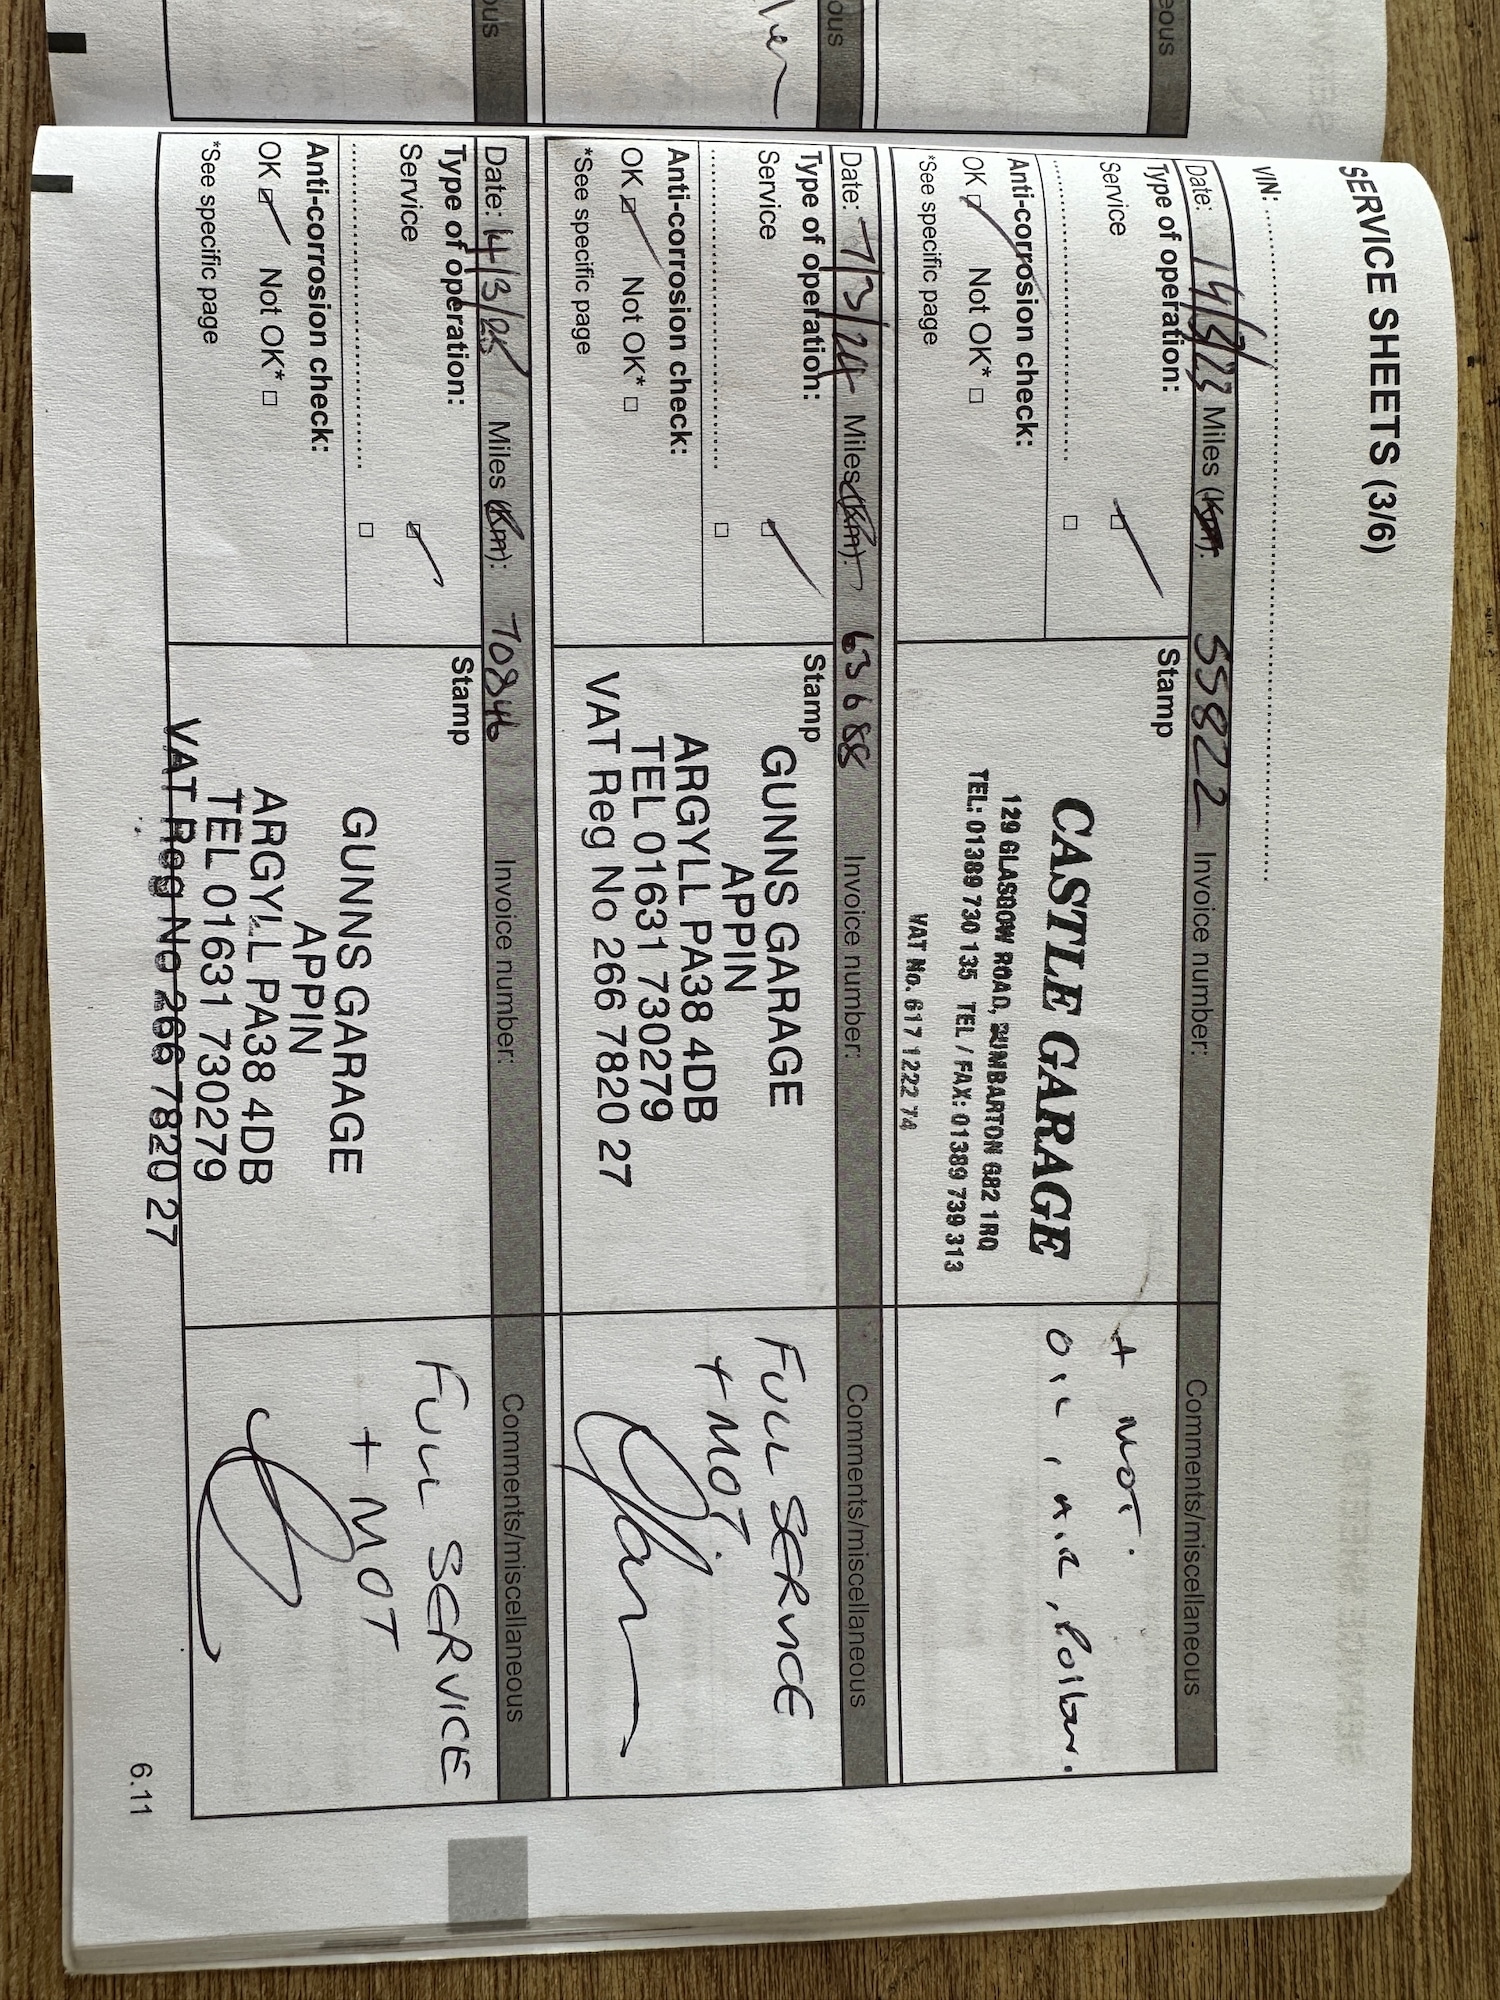 SERVICE SHEETS (3/6)
VIN: ....................
Date: 14/3/23 Miles (km): 55822 Invoice number: Comments/miscellaneous
Type of operation:
Service
Stamp
Anti-corrosion check:
OK Not OK*
*See specific page
CASTLE GARAGE
129 GLASGOW ROAD, DUMBARTON G82 1RQ
TEL: 01389 730 135 TEL / FAX: 01389 739 313
VAT No. 617 1222 74
+ MOT.
OIL, AIR, Pollen.
Date: 7/3/24 Miles (km): 63688 Invoice number: Comments/miscellaneous
Type of operation:
Service
Stamp
Anti-corrosion check:
OK Not OK*
*See specific page
GUNNS GARAGE
APPIN
ARGYLL PA38 4DB
TEL 01631 730279
VAT Reg No 266 7820 27
FULL SERVICE
+ MOT
Date: 14/3/25 Miles (km): 70846 Invoice number: Comments/miscellaneous
Type of operation:
Service
Stamp
Anti-corrosion check:
OK Not OK*
*See specific page
GUNNS GARAGE
APPIN
ARGYLL PA38 4DB
TEL 01631 730279
VAT Reg No 266 7820 27
FULL SERVICE
+ MOT
6.11